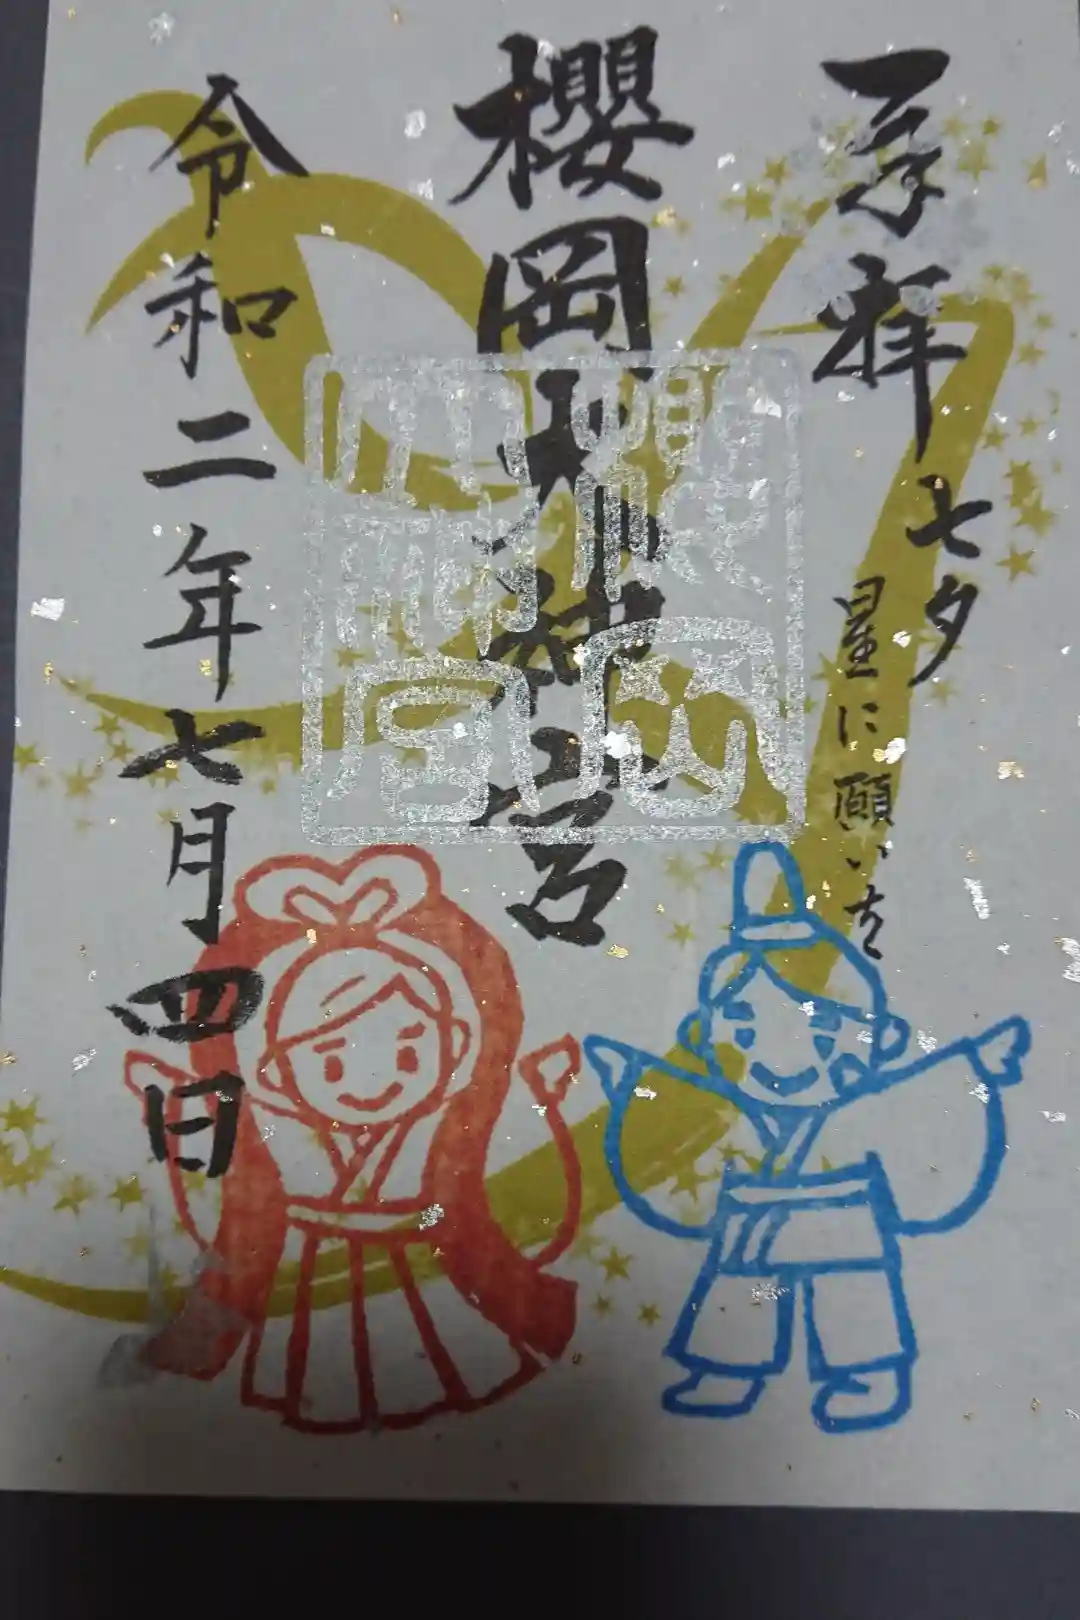 奉拝
七夕
星に願いを
櫻岡大神宮
櫻岡
大神宮
令和二年七月四日